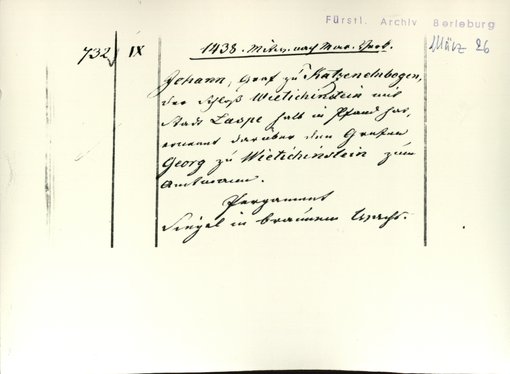 Fürstl. Archiv Berleburg
732 IX 1438. Mittw. nach Mar. März 26
Johann, Graf zu Katzenelnbogen,
der Schloß Wietichinstein mit
Stadt Laspe halb in Pfand hat,
ernennt darüber den Grafen
Georg zu Wietichinstein zum
Amtmann.
Pergament
Siegel in braunem Wachs.